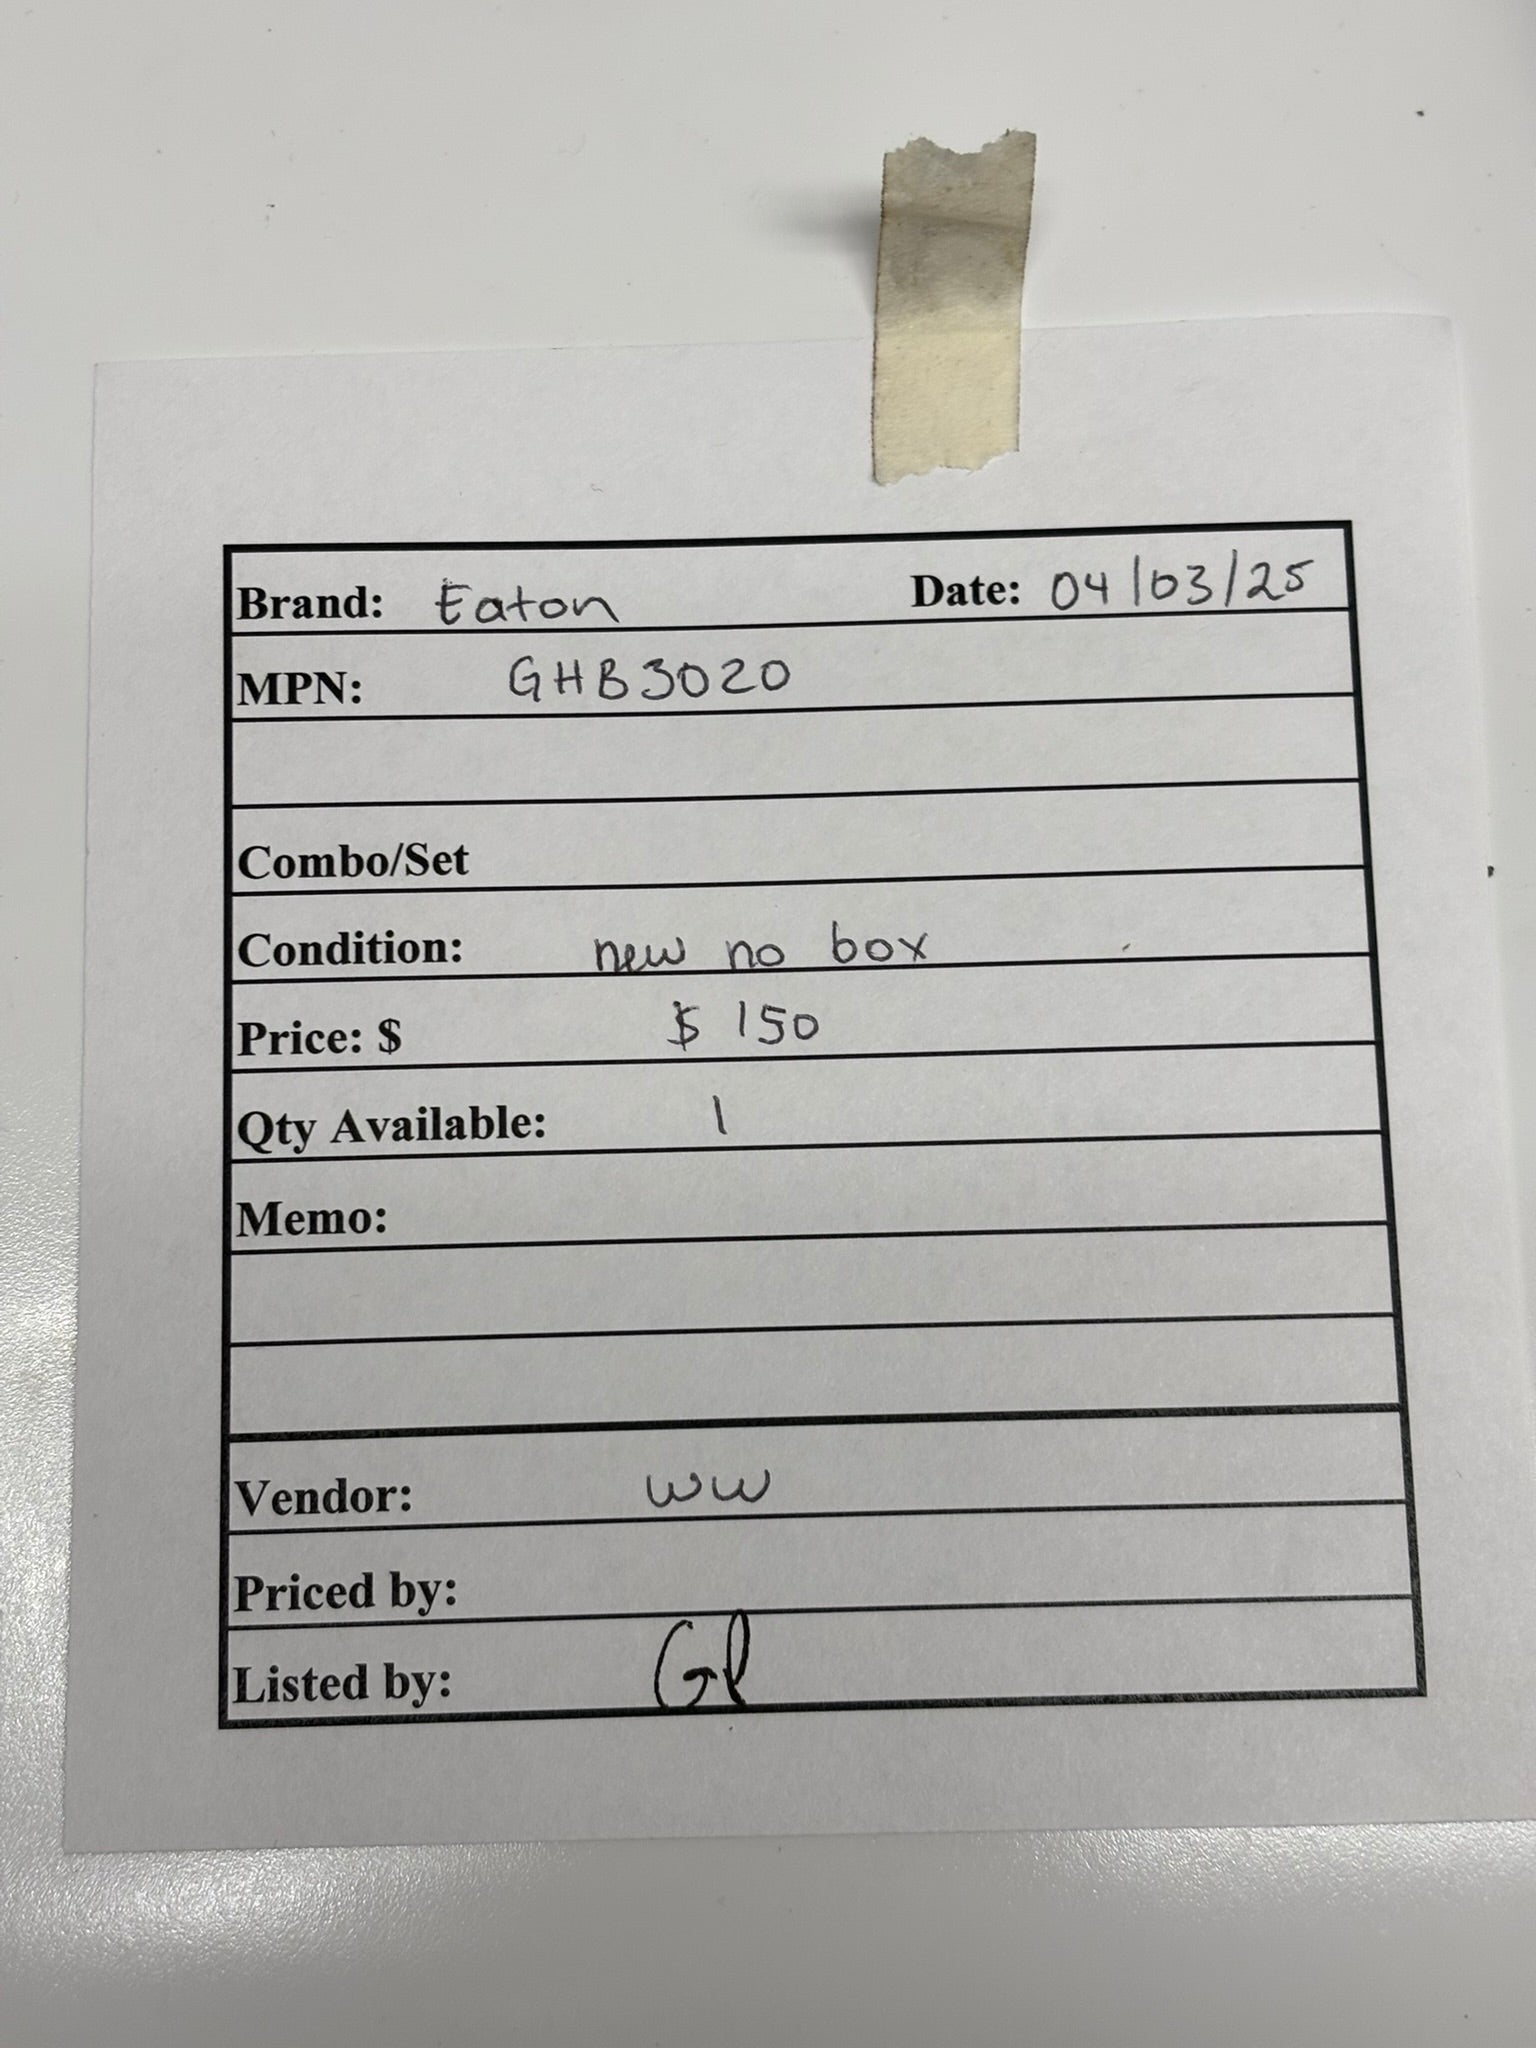 Brand: Eaton Date: 04/03/25
MPN: GHB3020
Combo/Set
Condition: new no box
Price: $ $ 150
Qty Available: 1
Memo:
Vendor: WW
Priced by:
Listed by: